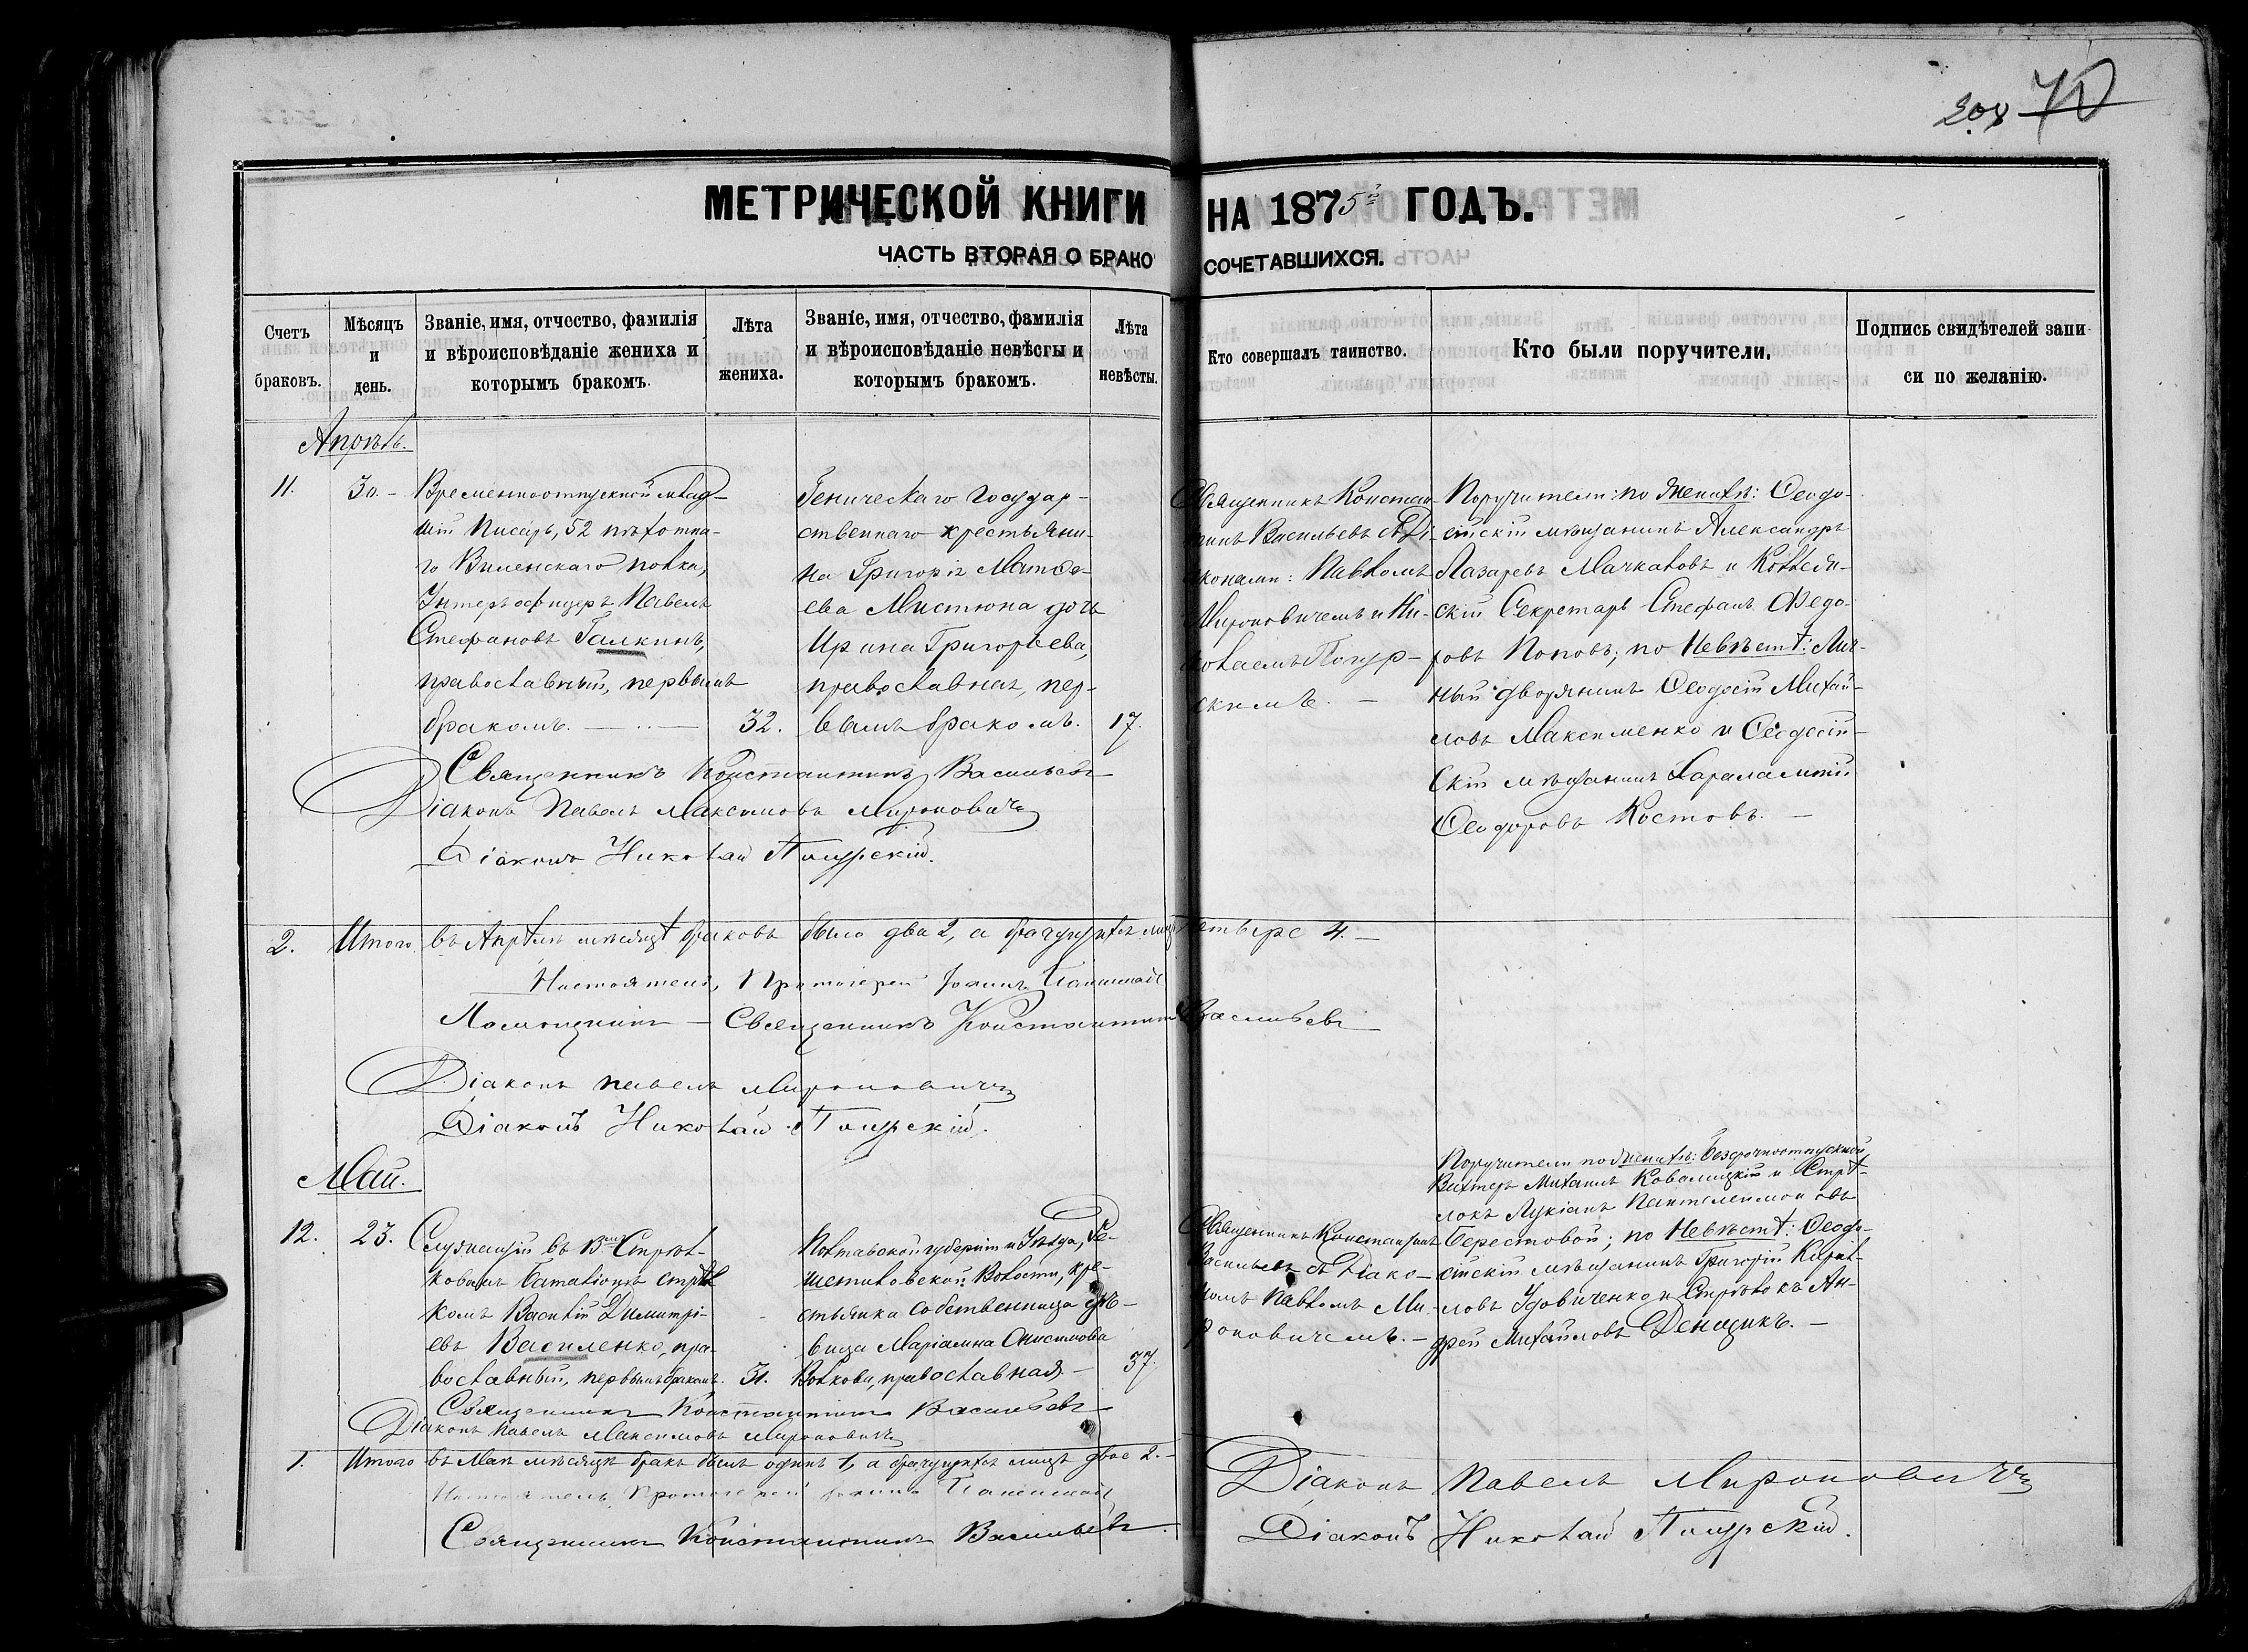 70
МЕТРИЧЕСКОЙ КНИГИ НА 1875й ГОДЪ.
ЧАСТЬ ВТОРАЯ О БРАКОСОЧЕТАВШИХСЯ.
Счетъ браковъ.
Мѣсяцъ и день.
Званіе, имя, отчество, фамилія и вѣроисповѣданіе жениха и которымъ бракомъ.
Лѣта жениха.
Званіе, имя, отчество, фамилія и вѣроисповѣданіе невѣсты и которымъ бракомъ.
Лѣта невѣсты.
Кто совершалъ таинство.
Кто были поручители.
Подпись свидѣтелей запи
си по желанію.
Апрѣль.
11.
30.
Временноотпускной млад-
шій Писарь, 52 пѣхотна-
го Виленскаго полка,
Унтеръ офицеръ Павелъ
Стефановъ Галкинъ,
православный, первымъ
бракомъ.
32.
Геническаго Государ-
ственнаго крестьяни-
на Григорія Матѳе-
ева Мистюна дочь
Ирина Григорьева,
православная, пер-
вымъ бракомъ.
17.
Священникъ Констан-
тинъ Васильевъ съ Ді-
аконами: Павломъ
Мироновичемъ и Ни-
колаемъ
Поручители: по Женихѣ: Ѳеодо-
сійскій мѣщанинъ Александръ
Лазаревъ Мачкаловъ и Коллеж-
скій Секретарь Стефанъ Ѳедо-
ровъ Поповъ; по Невѣстѣ: Лич-
ный дворянинъ Ѳеодосій Михай-
ловъ Максименко и Ѳеодосій-
скій мѣщанинъ Харалампій
Ѳеодоровъ Костовъ.
Священникъ Константинъ Васильевъ
Діаконъ Павелъ Максимовъ Мироновичъ
Діаконъ Николай
2.
Итого въ Апрѣлѣ мѣсяцѣ браковъ было два 2, а брачущихся лицъ четыре 4.
Настоятель, Протоіерей Іоаннъ
Помощникъ Священникъ Константинъ Васильевъ
Діаконъ Павелъ Мироновичъ
Діаконъ Николай
Май.
12.
23.
Служащій въ Стрѣл-
ковомъ Баталіонѣ стрѣл
комъ Василій Димитрі-
евъ Василенко, пра-
вославный, первымъ бракомъ.
31.
Полтавской губерніи и Уѣзда, Ре-
шетиловской Волости, кре-
стьянка собственница дѣ-
вица Маріамна Онисимова
Волкова, православная.
37.
Священникъ Константинъ
Васильевъ съ Діако-
номъ Павломъ Ми-
роновичемъ.
Поручители по Женихѣ: безсрочноотпускной
Вахтеръ Михаилъ и Стрѣ-
локъ Лукіанъ Пантелеимоновъ
Берестовой; по Невѣстѣ: Ѳеодо-
сійскій мѣщанинъ Григорій Кирил-
ловъ Удовиченко и Стрѣлокъ Ан-
дрей Михайловъ Денщикъ.
Священникъ Константинъ Васильевъ
Діаконъ Павелъ Максимовъ Мироновичъ
1.
Итого въ Маѣ мѣсяцѣ бракъ былъ одинъ 1, а брачущихся лицъ двое 2.
Настоятель, Протоіерей Іоаннъ
Священникъ Константинъ Васильевъ
Діаконъ Павелъ Мироновичъ
Діаконъ Николай